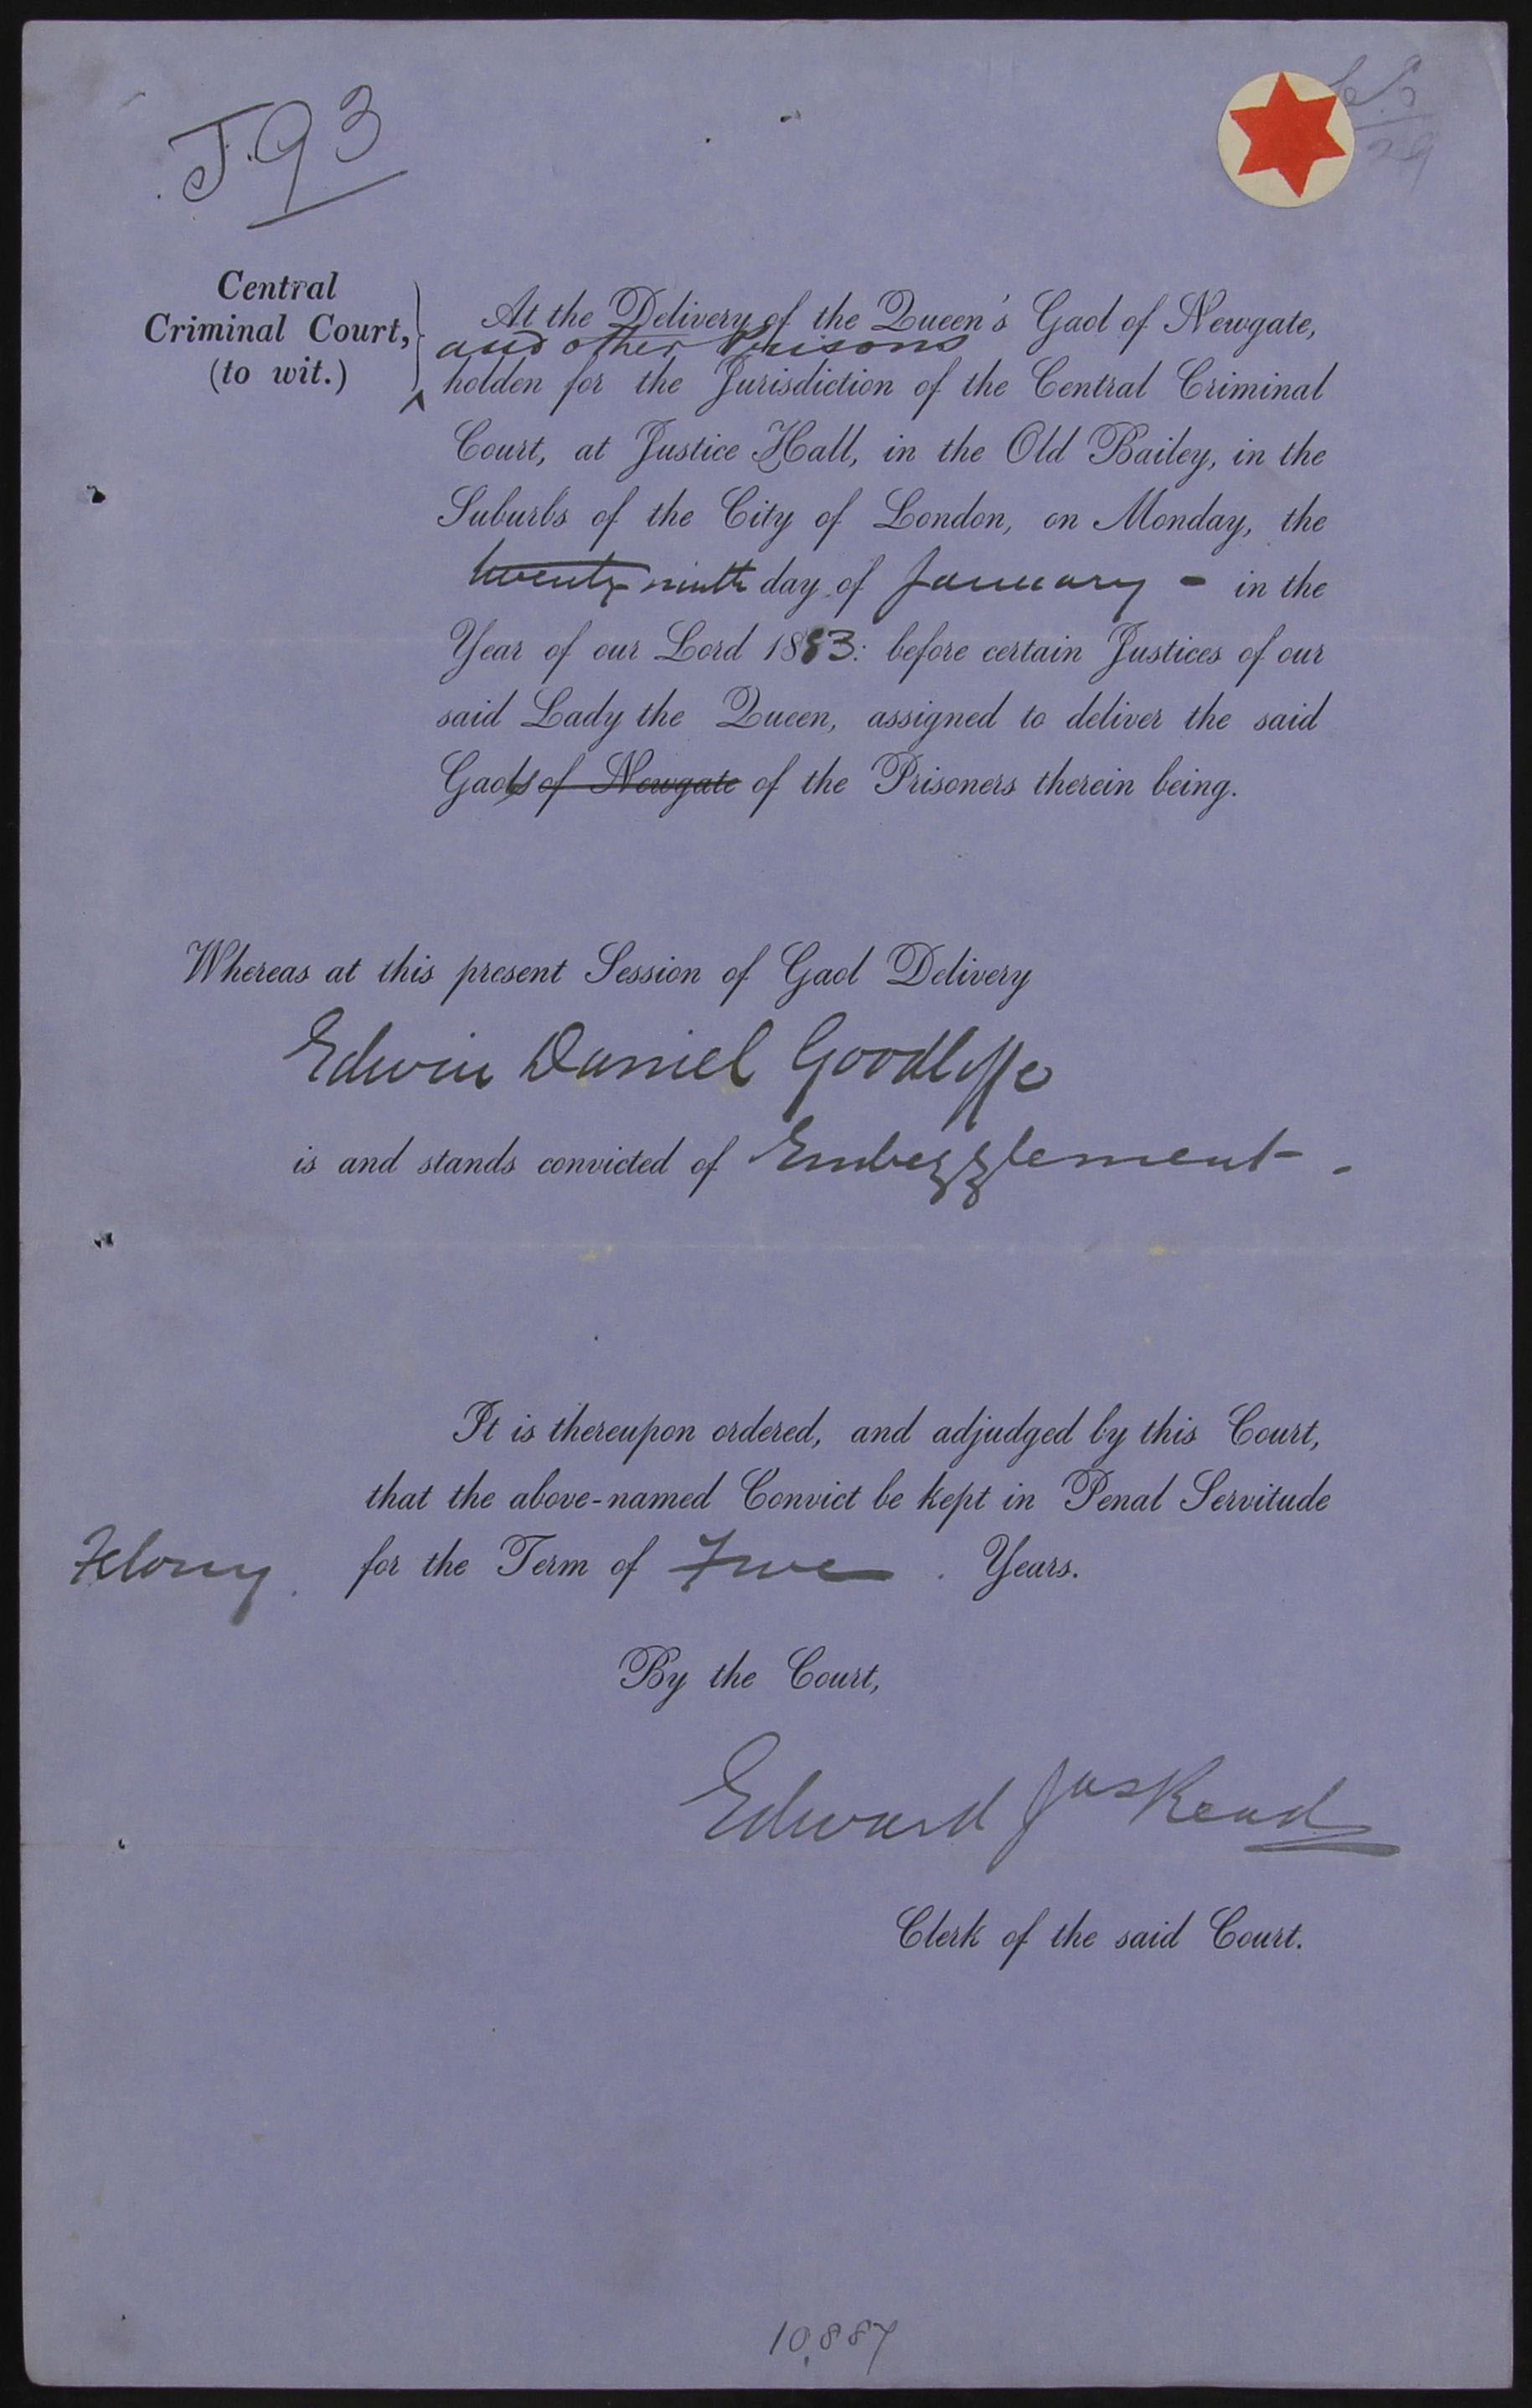 J.93
Central
Criminal Court,
(to wit.)
At the Delivery of the Queen's Gaol of Newgate,
and other Prisons
holden for the Jurisdiction of the Central Criminal
Court, at Justice Hall, in the Old Bailey, in the
Suburbs of the City of London, on Monday, the
twenty ninth day of January - in the
Year of our Lord 1883: before certain Justices of our
said Lady the Queen, assigned to deliver the said
Gaols of Newgate of the Prisoners therein being.
Whereas at this present Session of Gaol Delivery
Edwin Daniel Goodliffe
is and stands convicted of Embezzlement -
It is thereupon ordered, and adjudged by this Court,
that the above-named Convict be kept in Penal Servitude
Felony. for the Term of Five . Years.
By the Court,
Edward Jas Read
Clerk of the said Court.
10,887